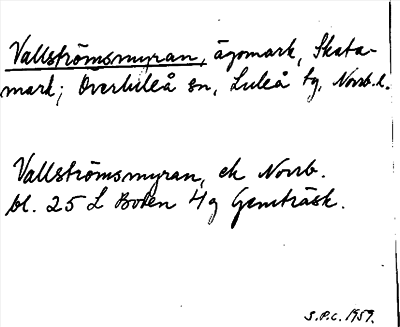 Vallströmsmyran, ägomark, Skata-
mark; Överluleå sn, Luleå tg, Norrb. l.
Vallströmsmyran, ek Norrb.
bl. 25 L Boden 4g Gemträsk.
S.P.C. 1959.